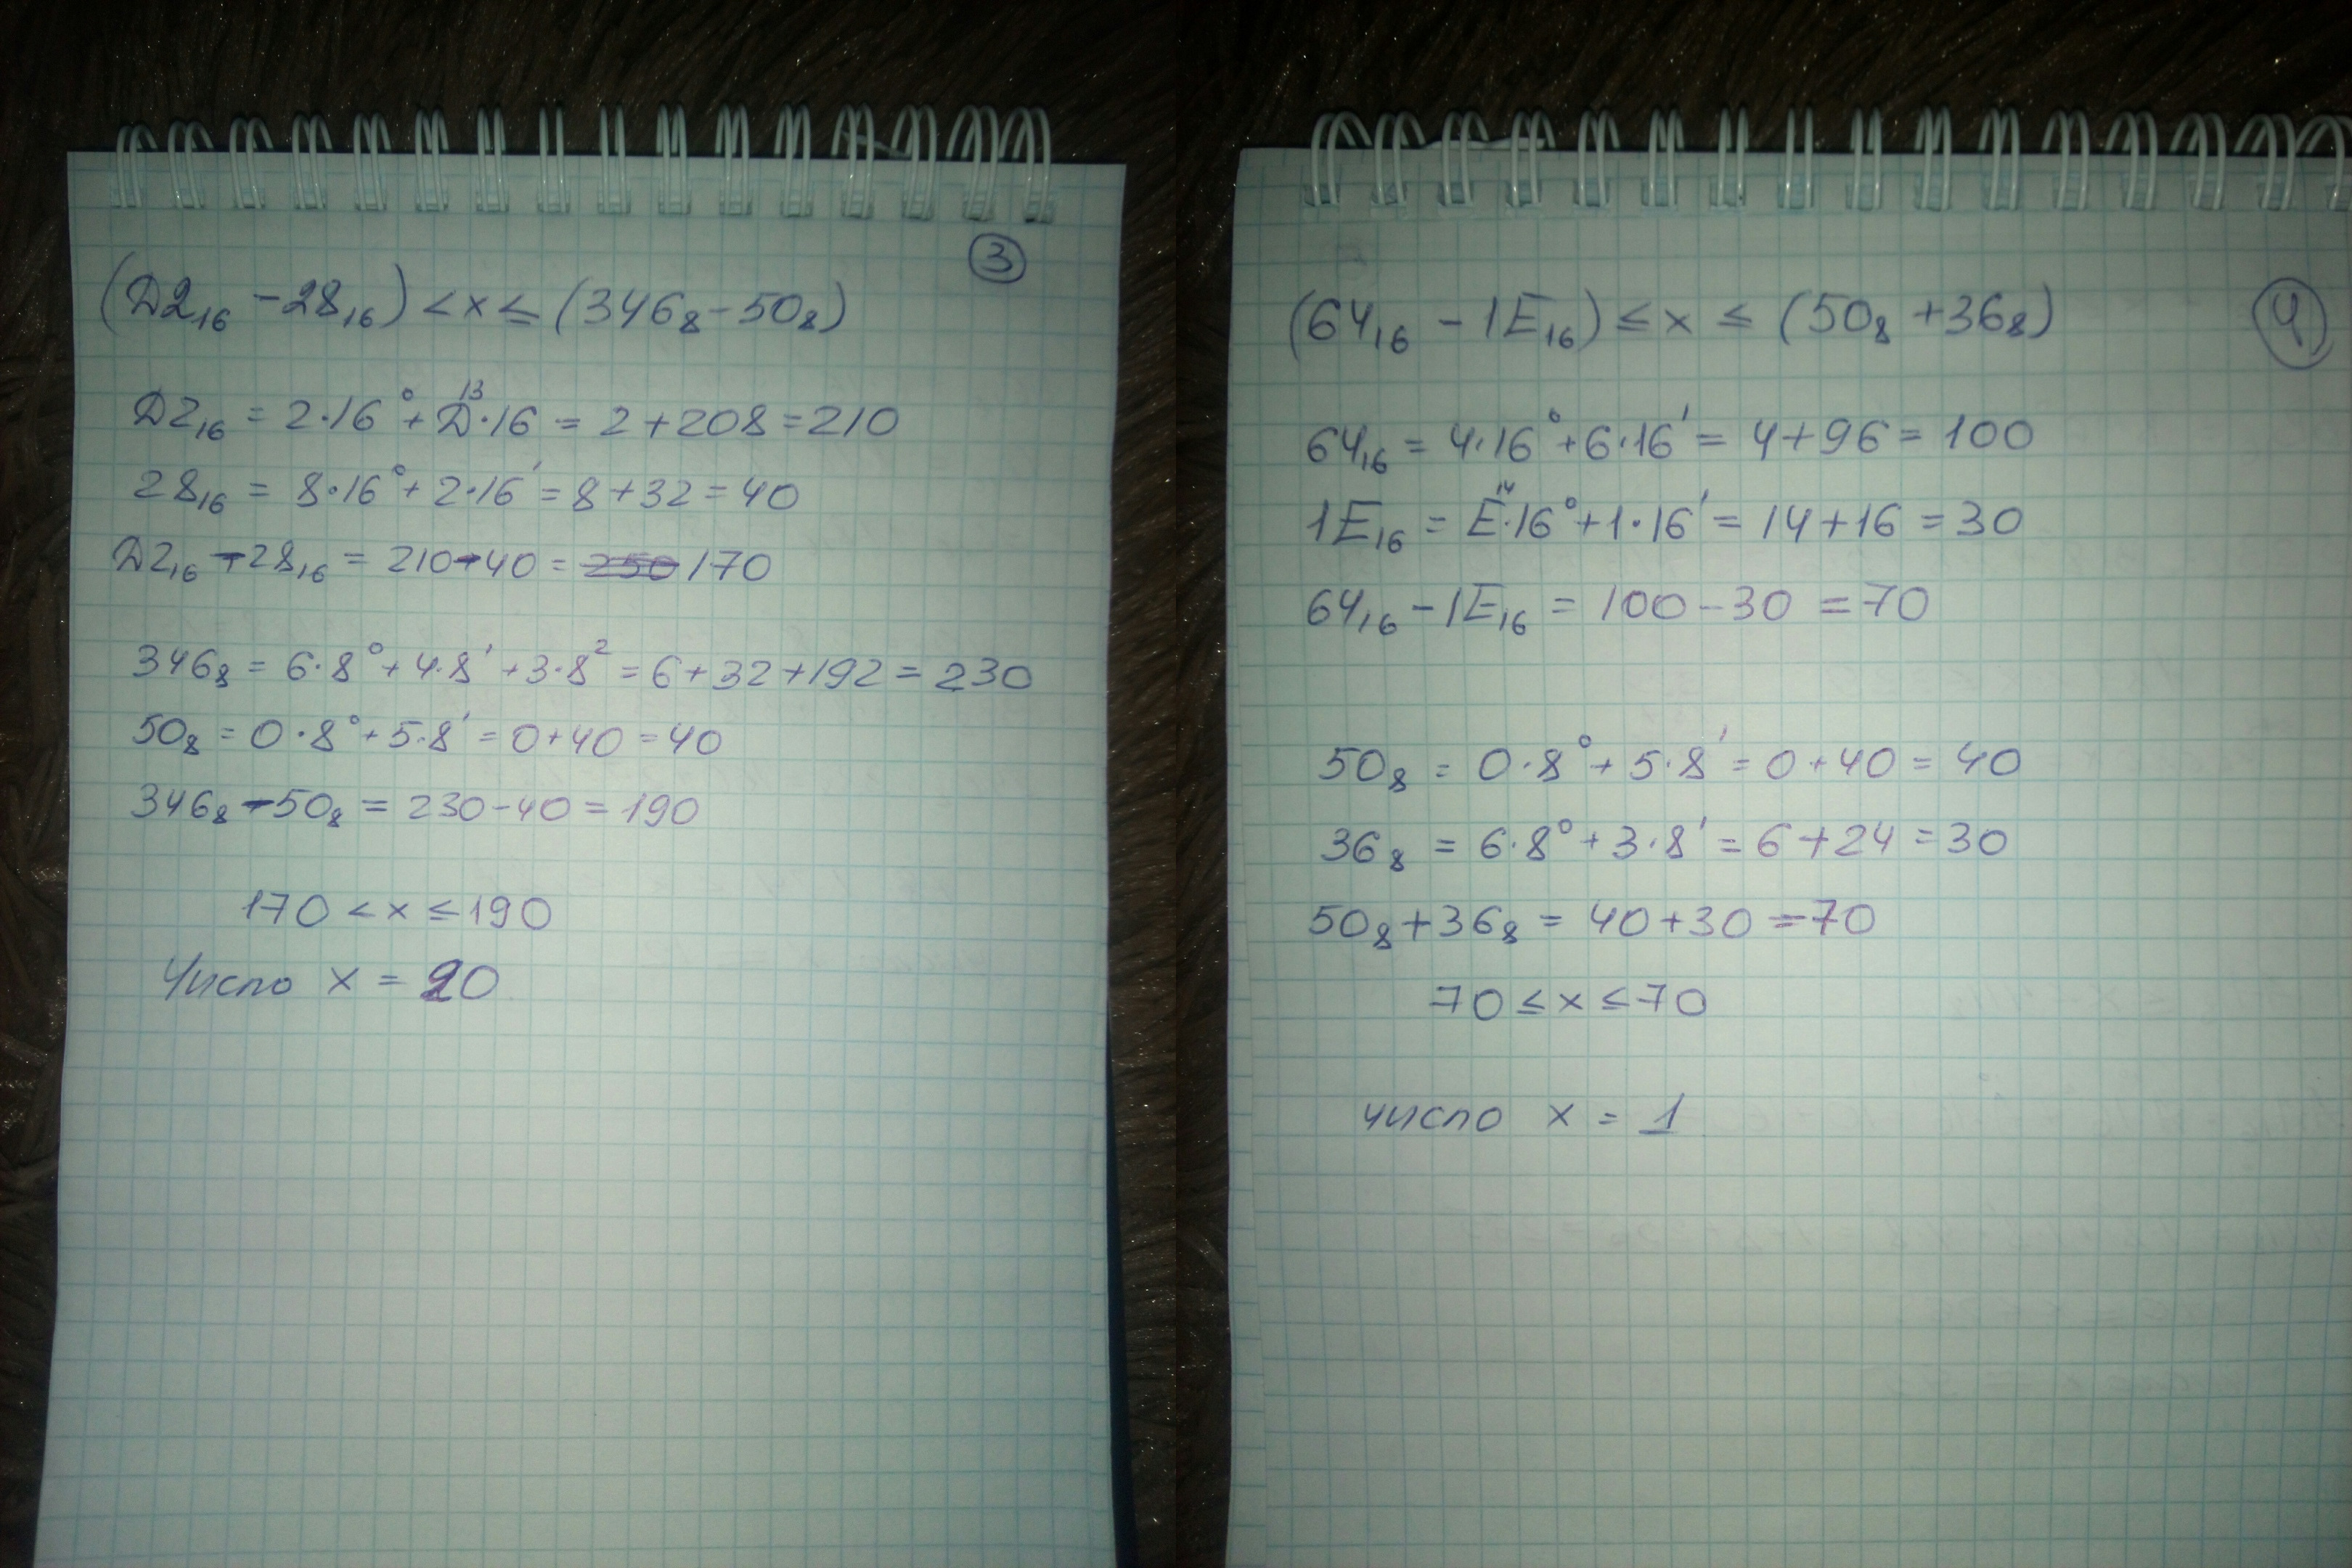 ③
(D2₁₆ - 28₁₆) < x ≤ (346₈ - 50₈)
D2₁₆ = 2·16⁰ + D¹³·16 = 2 + 208 = 210
28₁₆ = 8·16⁰ + 2·16¹ = 8 + 32 = 40
D2₁₆ - 28₁₆ = 210 - 40 = ~~250~~ 170
346₈ = 6·8⁰ + 4·8¹ + 3·8² = 6 + 32 + 192 = 230
50₈ = 0·8⁰ + 5·8¹ = 0 + 40 = 40
346₈ - 50₈ = 230 - 40 = 190
170 < x ≤ 190
Число x = 20
④
(64₁₆ - 1E₁₆) ≤ x ≤ (50₈ + 36₈)
64₁₆ = 4·16⁰ + 6·16¹ = 4 + 96 = 100
1E₁₆ = E¹⁴·16⁰ + 1·16¹ = 14 + 16 = 30
64₁₆ - 1E₁₆ = 100 - 30 = 70
50₈ = 0·8⁰ + 5·8¹ = 0 + 40 = 40
36₈ = 6·8⁰ + 3·8¹ = 6 + 24 = 30
50₈ + 36₈ = 40 + 30 = 70
70 ≤ x ≤ 70
число x = 1